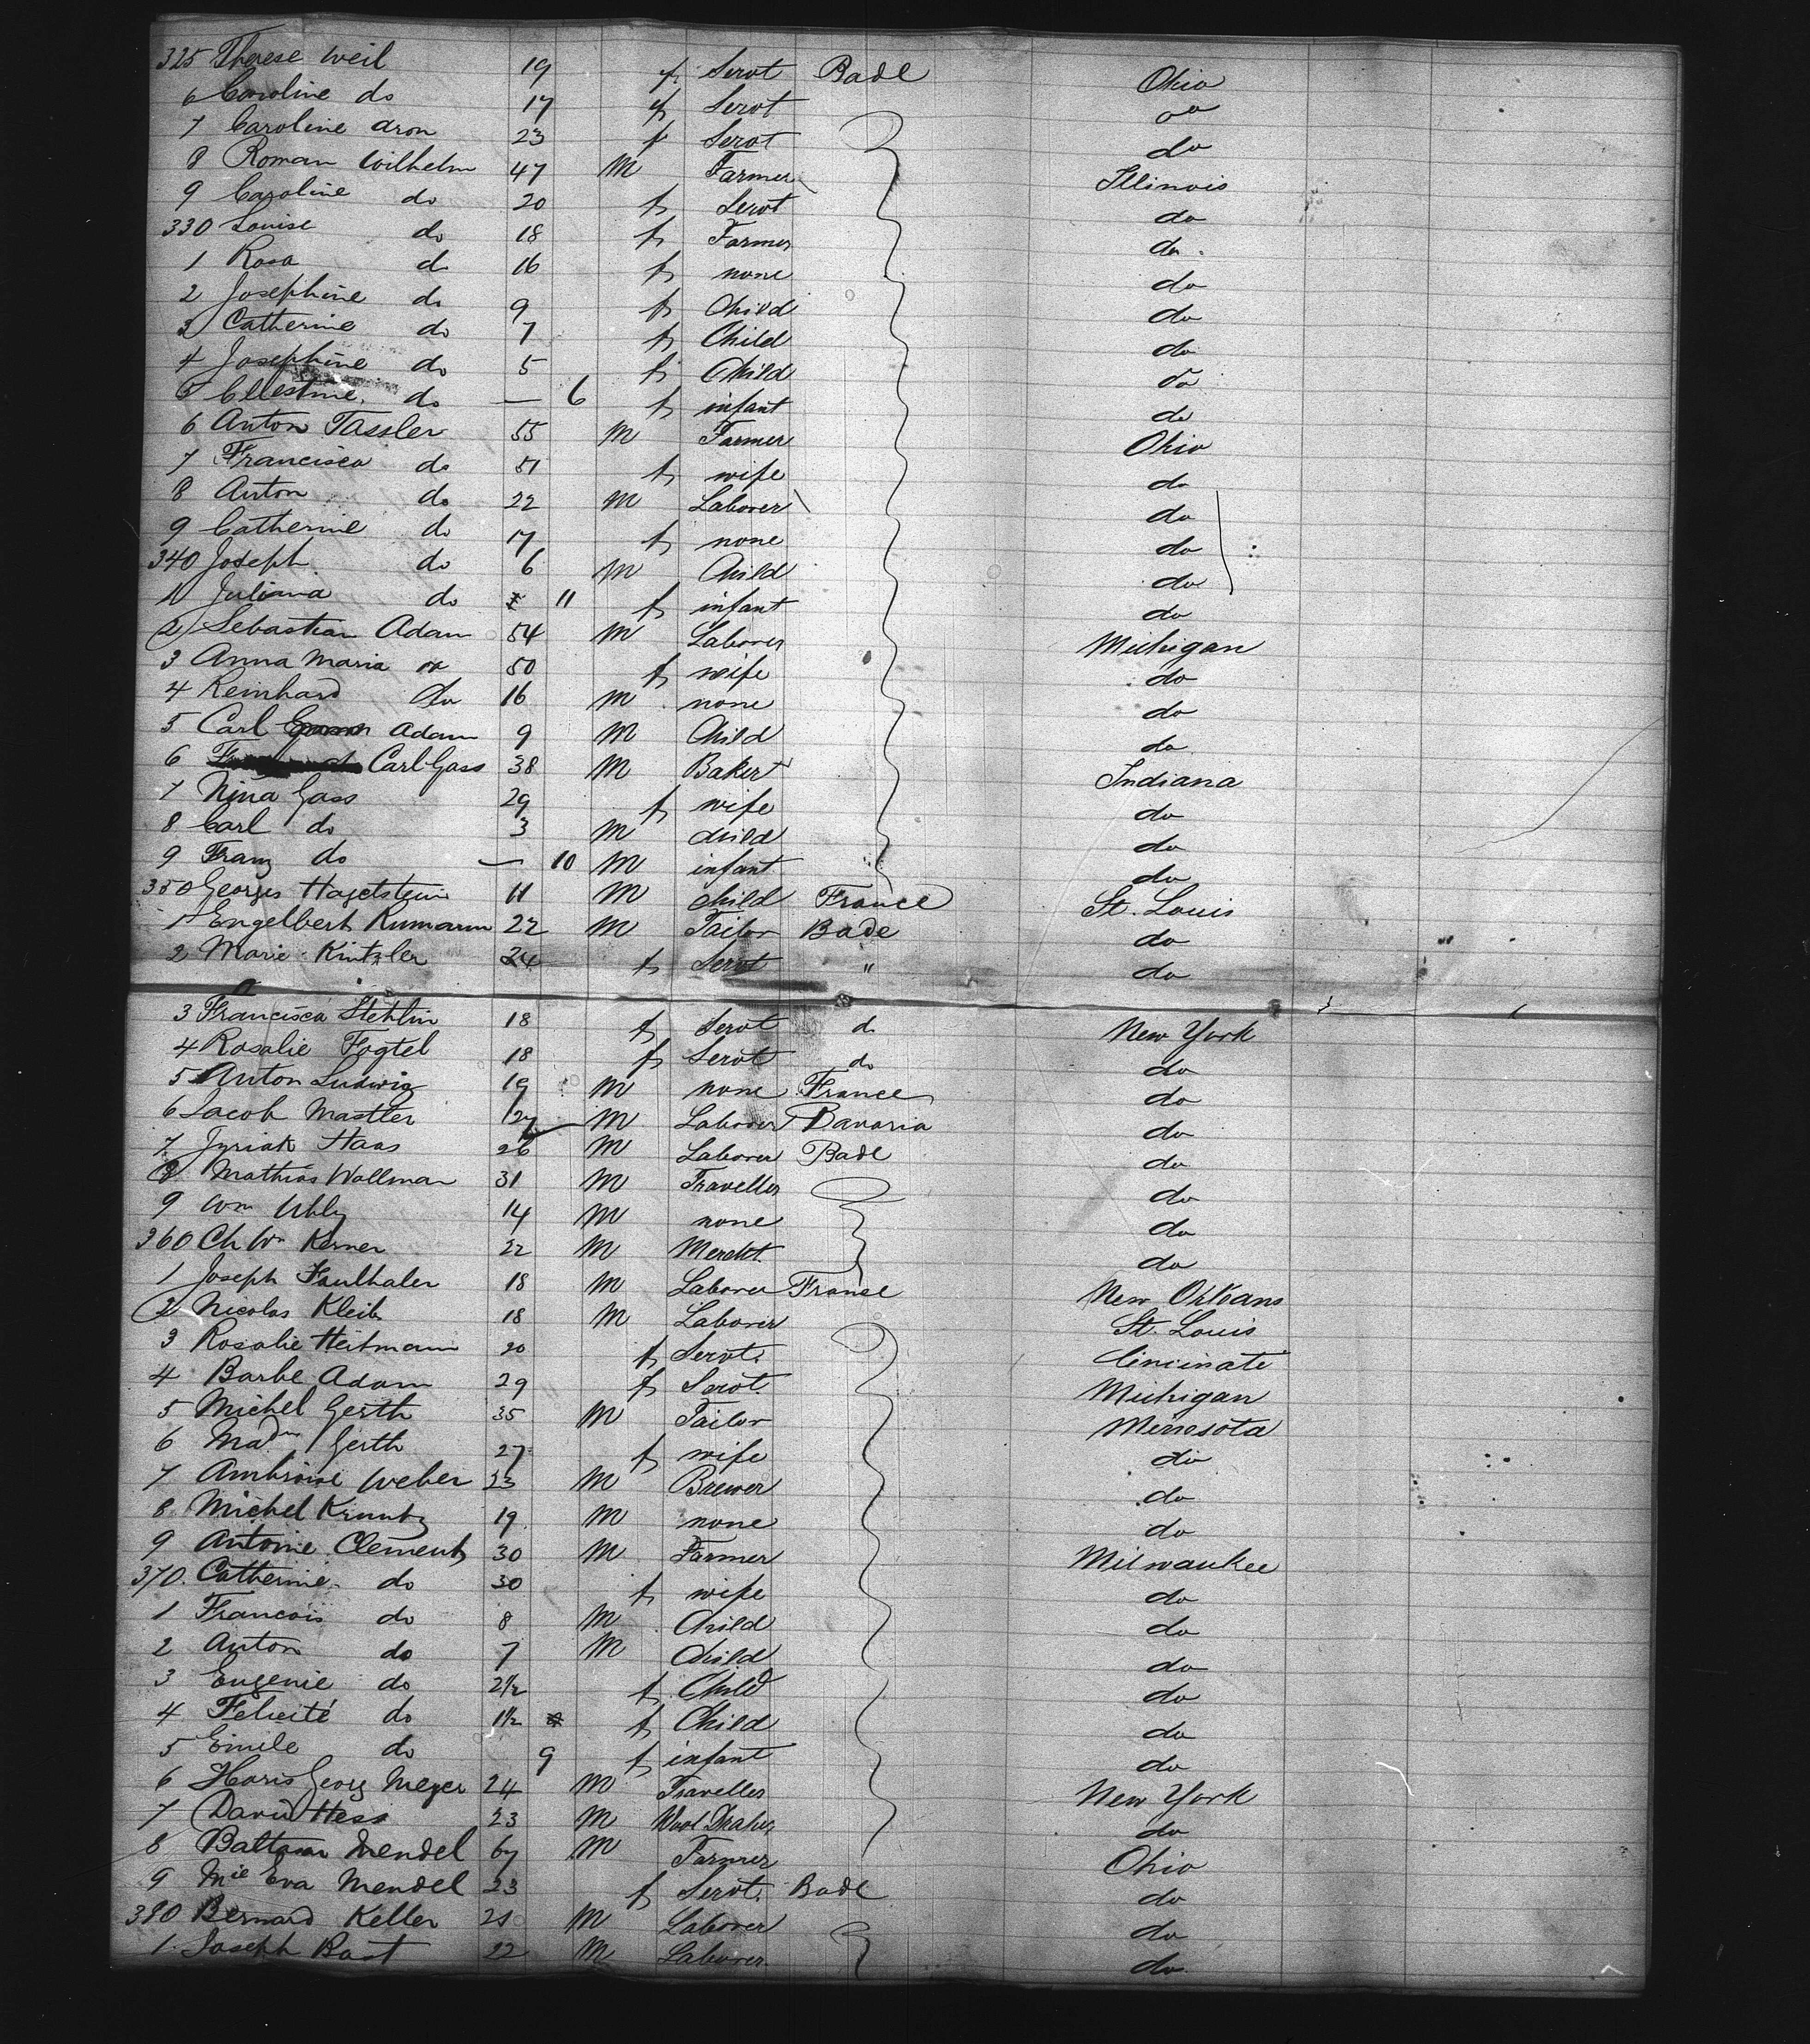 325 Therese Weil 19 f Servt Bade Ohio
6 Caroline do 17 f Servt do
7 Caroline Aron 23 f Servt do
8 Roman Wilhelm 47 M Farmer Illinois
9 Caroline do 20 f Servt do
330 Louise do 18 f Farmer do
1 Rosa do 16 f none do
2 Josephine do 9 f Child do
3 Catherine do 7 f Child do
4 Josephine do 5 f Child do
5 Celestine do — 6 f infant do
6 Anton Tassler 55 M Farmer Ohio
7 Francisca do 51 f wife do
8 Anton do 22 M Laborer do
9 Catherine do 17 f none do
340 Joseph do 6 M Child do
1 Juliana do 11 f infant do
2 Sebastian Adam 54 M Laborer Michigan
3 Anna Maria do 50 f wife do
4 Reinhard do 16 M none do
5 Carl Adam 9 M Child do
6 Carl Gass 38 M Baker Indiana
7 Nina Gass 29 f wife do
8 Carl do 3 M child do
9 Franz do — 10 M infant do
350 Georges Hagelstein 11 M child France St. Louis
1 Engelbert Rumann 22 M Tailor Bade do
2 Marie Kintzler 24 f Servt " do
3 Francisca Stehlin 18 f Servt do New York
4 Rosalie Fogtel 18 f Servt do do
5 Anton Ludwig 19 M none France do
6 Jacob Mastler 27 M Laborer Bavaria do
7 Jyriak Haas 26 M Laborer Bade do
8 Mathias Wollman 31 M Traveller do
9 Wm Uhly 14 M none do
360 Ch Wm Kerner 22 M Mercht. do
1 Joseph Faulhaler 18 M Laborer France New Orleans
2 Nicolas Kleib 18 M Laborer St. Louis
3 Rosalie Heitmann 20 f Servt. Cincinati
4 Barbe Adam 29 f Servt. Michigan
5 Michel Gerth 35 M Tailor Minesota
6 Madm Gerth 27 f wife do
7 Ambroise Weber 23 M Brewer do
8 Michel Kruntz 19 M none do
9 Antoine Clementz 30 M Farmer Milwaukee
370. Catherine do 30 f wife do
1 Francois do 8 M Child do
2 Anton do 7 M Child do
3 Eugenie do 2½ f Child do
4 Felicité do 1½ f Child do
5 Emile do 9 f infant do
6 Georg Meyer 24 M Traveller New York
7 David Hess 23 M Wool Draper do
8 Mendel 67 M Farmer Ohio
9 Mie Eva Mendel 23 f Servt. Bade do
380 Bernard Keller 21 M Laborer do
1. Joseph Bast 22 M Laborer do